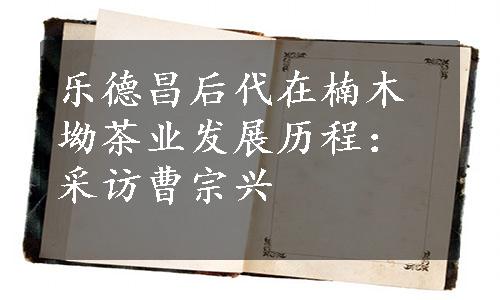 乐德昌后代在楠木
坳茶业发展历程：
采访曹宗兴